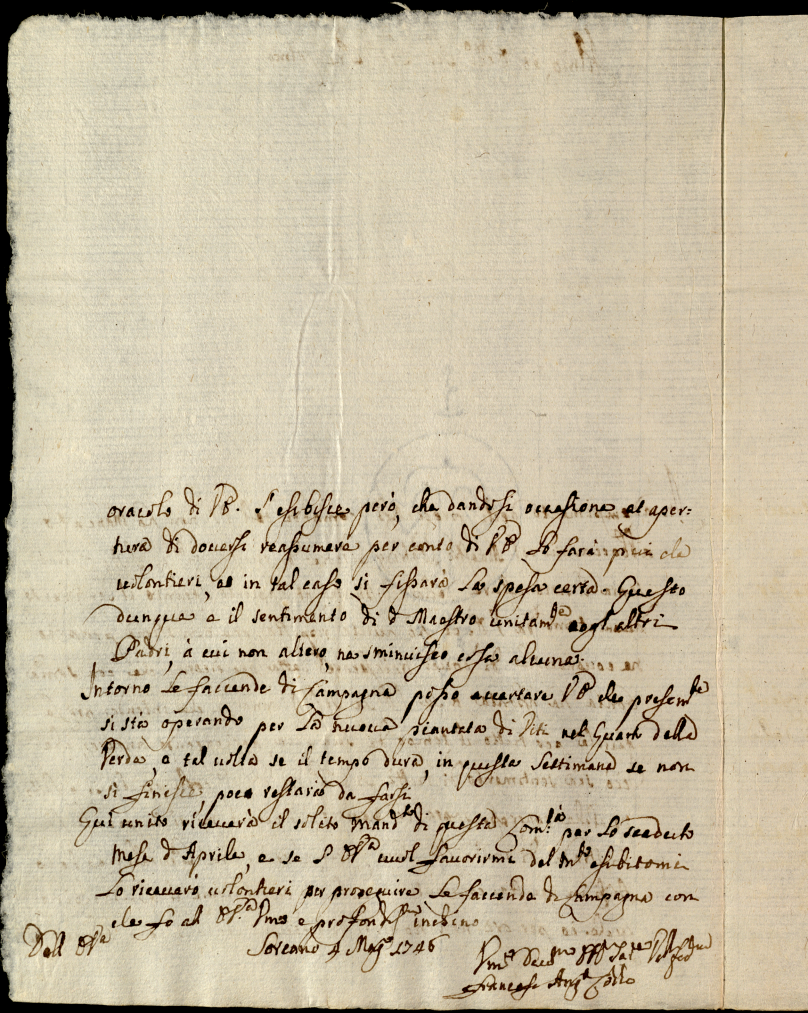 oracolo di VS. S'esibisce però, che dandosi occasione et aper=
tura di doversi reassumere per conto di VS. Lo farà che
volontieri, et in tal caso si fisserà La spesa certa. Questo
dunque è il sentimento di d Maestro unitam.te agl'altri
Padri, à cui non altero, ne sminuisco cosa alcuna.
Intorno Le faccende di Campagna posso accertare VS. che presem.te
si stà operando per La nuova piantata di Viti nel Quarto della
Verda, e tal volta se il tempo dura, in questa Settimana se non
si finisce, poco restarà da farsi
Qui unito riceverà il solito mand.to di questa Com.tà per Lo scaduto
mese d'Aprile, e se S. vuol favorirmi del esibitomi
Lo riceverò volontieri per proseguire Le faccende di Campagna con
che fo al e profond. inchino
Dell
Soreano 4 Mag.o 1746
Francesco Ang.